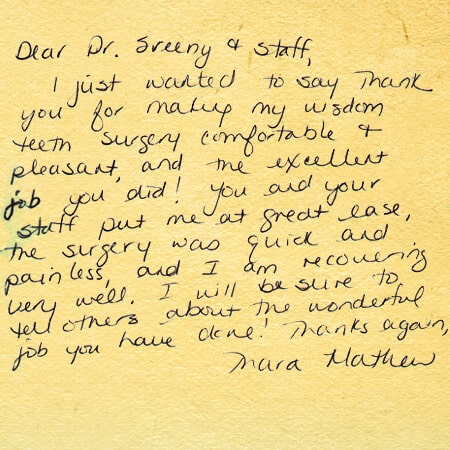 Dear Dr. Sreeny & staff,
I just wanted to say Thank
you for making my wisdom
teeth surgery comfortable &
pleasant, and the excellent
job you did! You and your
staff put me at great ease,
the surgery was quick and
painless, and I am recovering
very well. I will be sure to
tell others about the wonderful
job you have done! Thanks again,
Mara Mathew